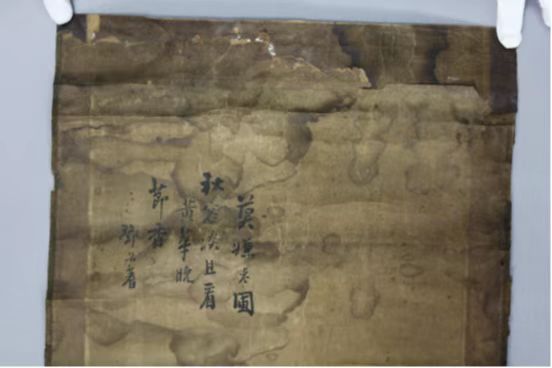 莫嫌老圃
秋容淡且看
黄華晚
節香